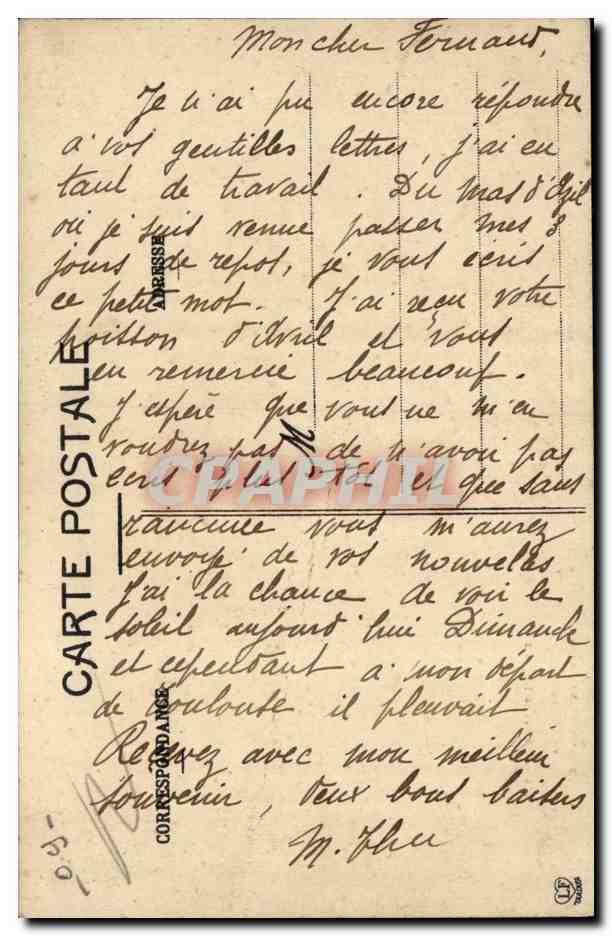 Mon cher Fernand,
Je n'ai pu encore répondre
à vos gentilles lettres, j'ai eu
tant de travail. Du Mas d'Azil
où je suis venue passer mes 3
jours de repos, je vous écris
ce petit mot. J'ai reçu votre
poisson d'Avril et vous
en remercie beaucoup.
J'espère que vous ne m'en
voudrez pas de n'avoir pas
écris plus tôt et que sans
rancune vous m'aurez
envoyé de vos nouvelles
J'ai la chance de voir le
soleil aujourd'hui Dimanche
et cependant à mon départ
de Toulouse il pleuvait
Recevez avec mon meilleur
souvenir, deux bons baisers
M.
CARTE POSTALE
ADRESSE
CORRESPONDANCE
M
CPAPHIL
LF